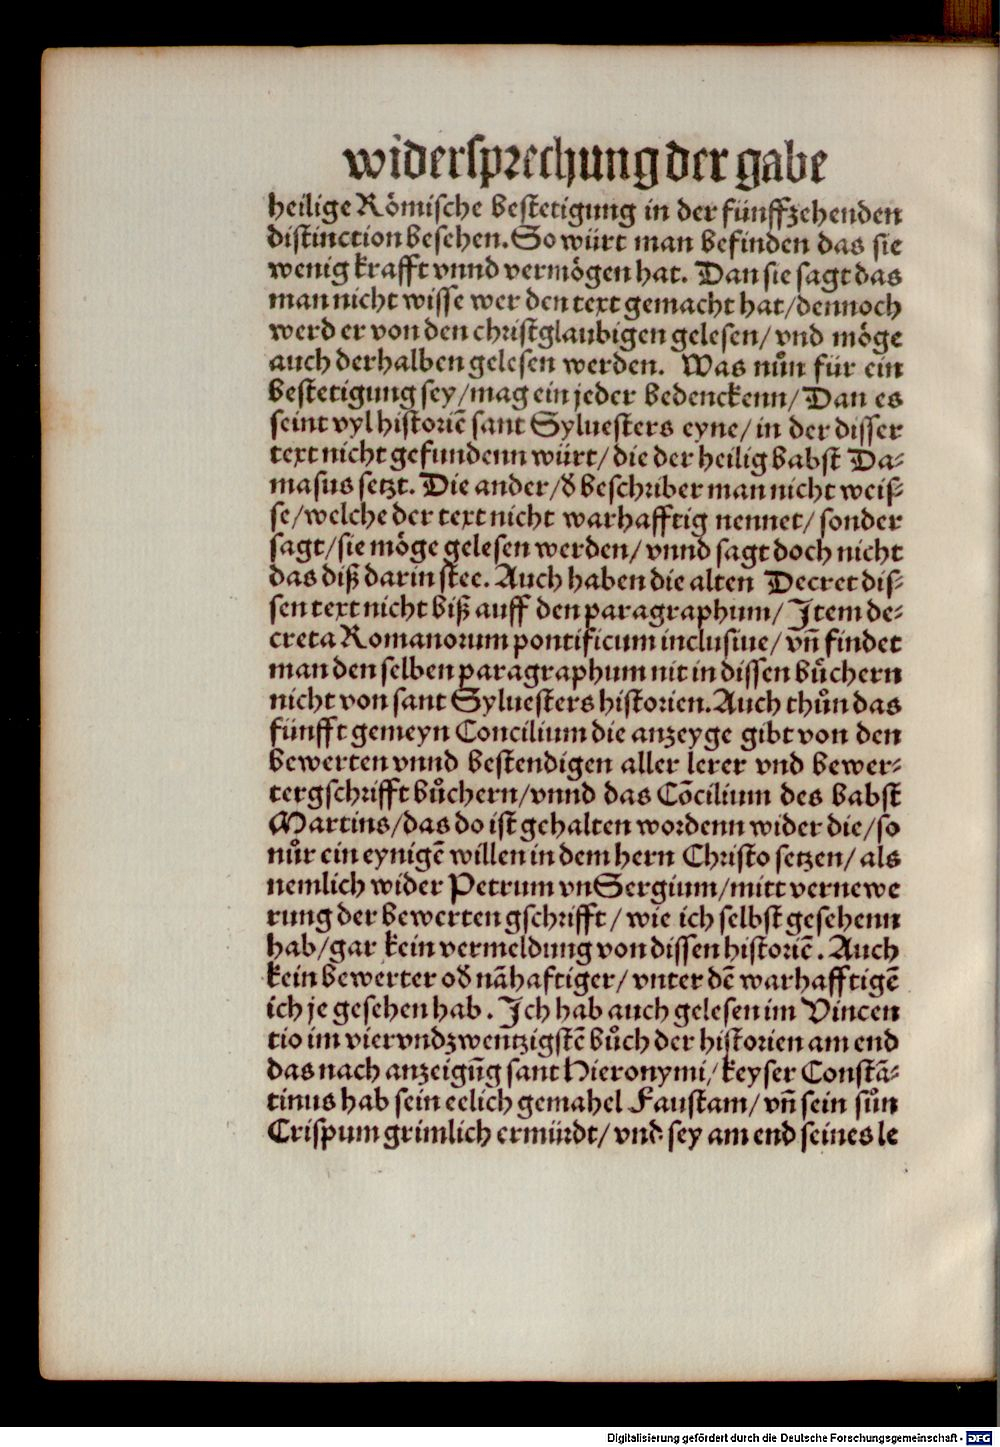 widersprechung der gabe
heilige Römische bestetigung in der fünffzehenden
distinction besehen. So würt man befinden das sie
wenig krafft vnnd vermögen hat. Dan sie sagt das
man nicht wisse wer den text gemacht hat/dennoch
werd er von den christglaubigen gelesen/ vnd möge
auch derhalben gelesen werden. Was nůn für ein
bestetigung sey/mag ein jeder bedenckenn/ Dan es
seint vyl historiē sant Syluesters eyne/ in der disser
text nicht gefundenn würt/ die der heilig babst Da⸗
masus setzt. Die ander/ð beschriber man nicht weis⸗
se/welche der text nicht warhafftig nennet/ sonder
sagt/sie möge gelesen werden/ vnnd sagt doch nicht
das diß darin stee. Auch haben die alten Decret dis⸗
sen text nicht biß auff den paragraphum/ Item de⸗
creta Romanorum pontificum inclusiue/ vn̄ findet
man den selben paragraphum nit in dissen bůchern
nicht von sant Syluesters historien. Auch thůn das
fünfft gemeyn Concilium die anzeyge gibt von den
bewerten vnnd bestendigen aller lerer vnd bewer⸗
ter gschrifft bůchern/vnnd das Cōcilium des babst
Martins/das do ist gehalten wordenn wider die/so
nůr ein eynigē willen in dem hern Christo setzen/ als
nemlich wider Petrum vn Sergium/mitt vernewe
rung der bewerten gschrifft/ wie ich selbst gesehenn
hab/gar kein vermeldung von dissen historiē. Auch
kein bewerter oð nāhaftiger/ vnter dē warhafftigē
ich je gesehen hab. Ich hab auch gelesen im Vincen
tio im vier vnd zwentzigstē bůch der historien am end
das nach anzeigūg sant Hieronymi/ keyser Constā⸗
tinus hab sein eelich gemahel Faustam/ vn̄ sein sůn
Crispum grimlich ermürdt/ vnd sey am end seines le
Digitalisierung gefördert durch die Deutsche Forschungsgemeinschaft - DFG